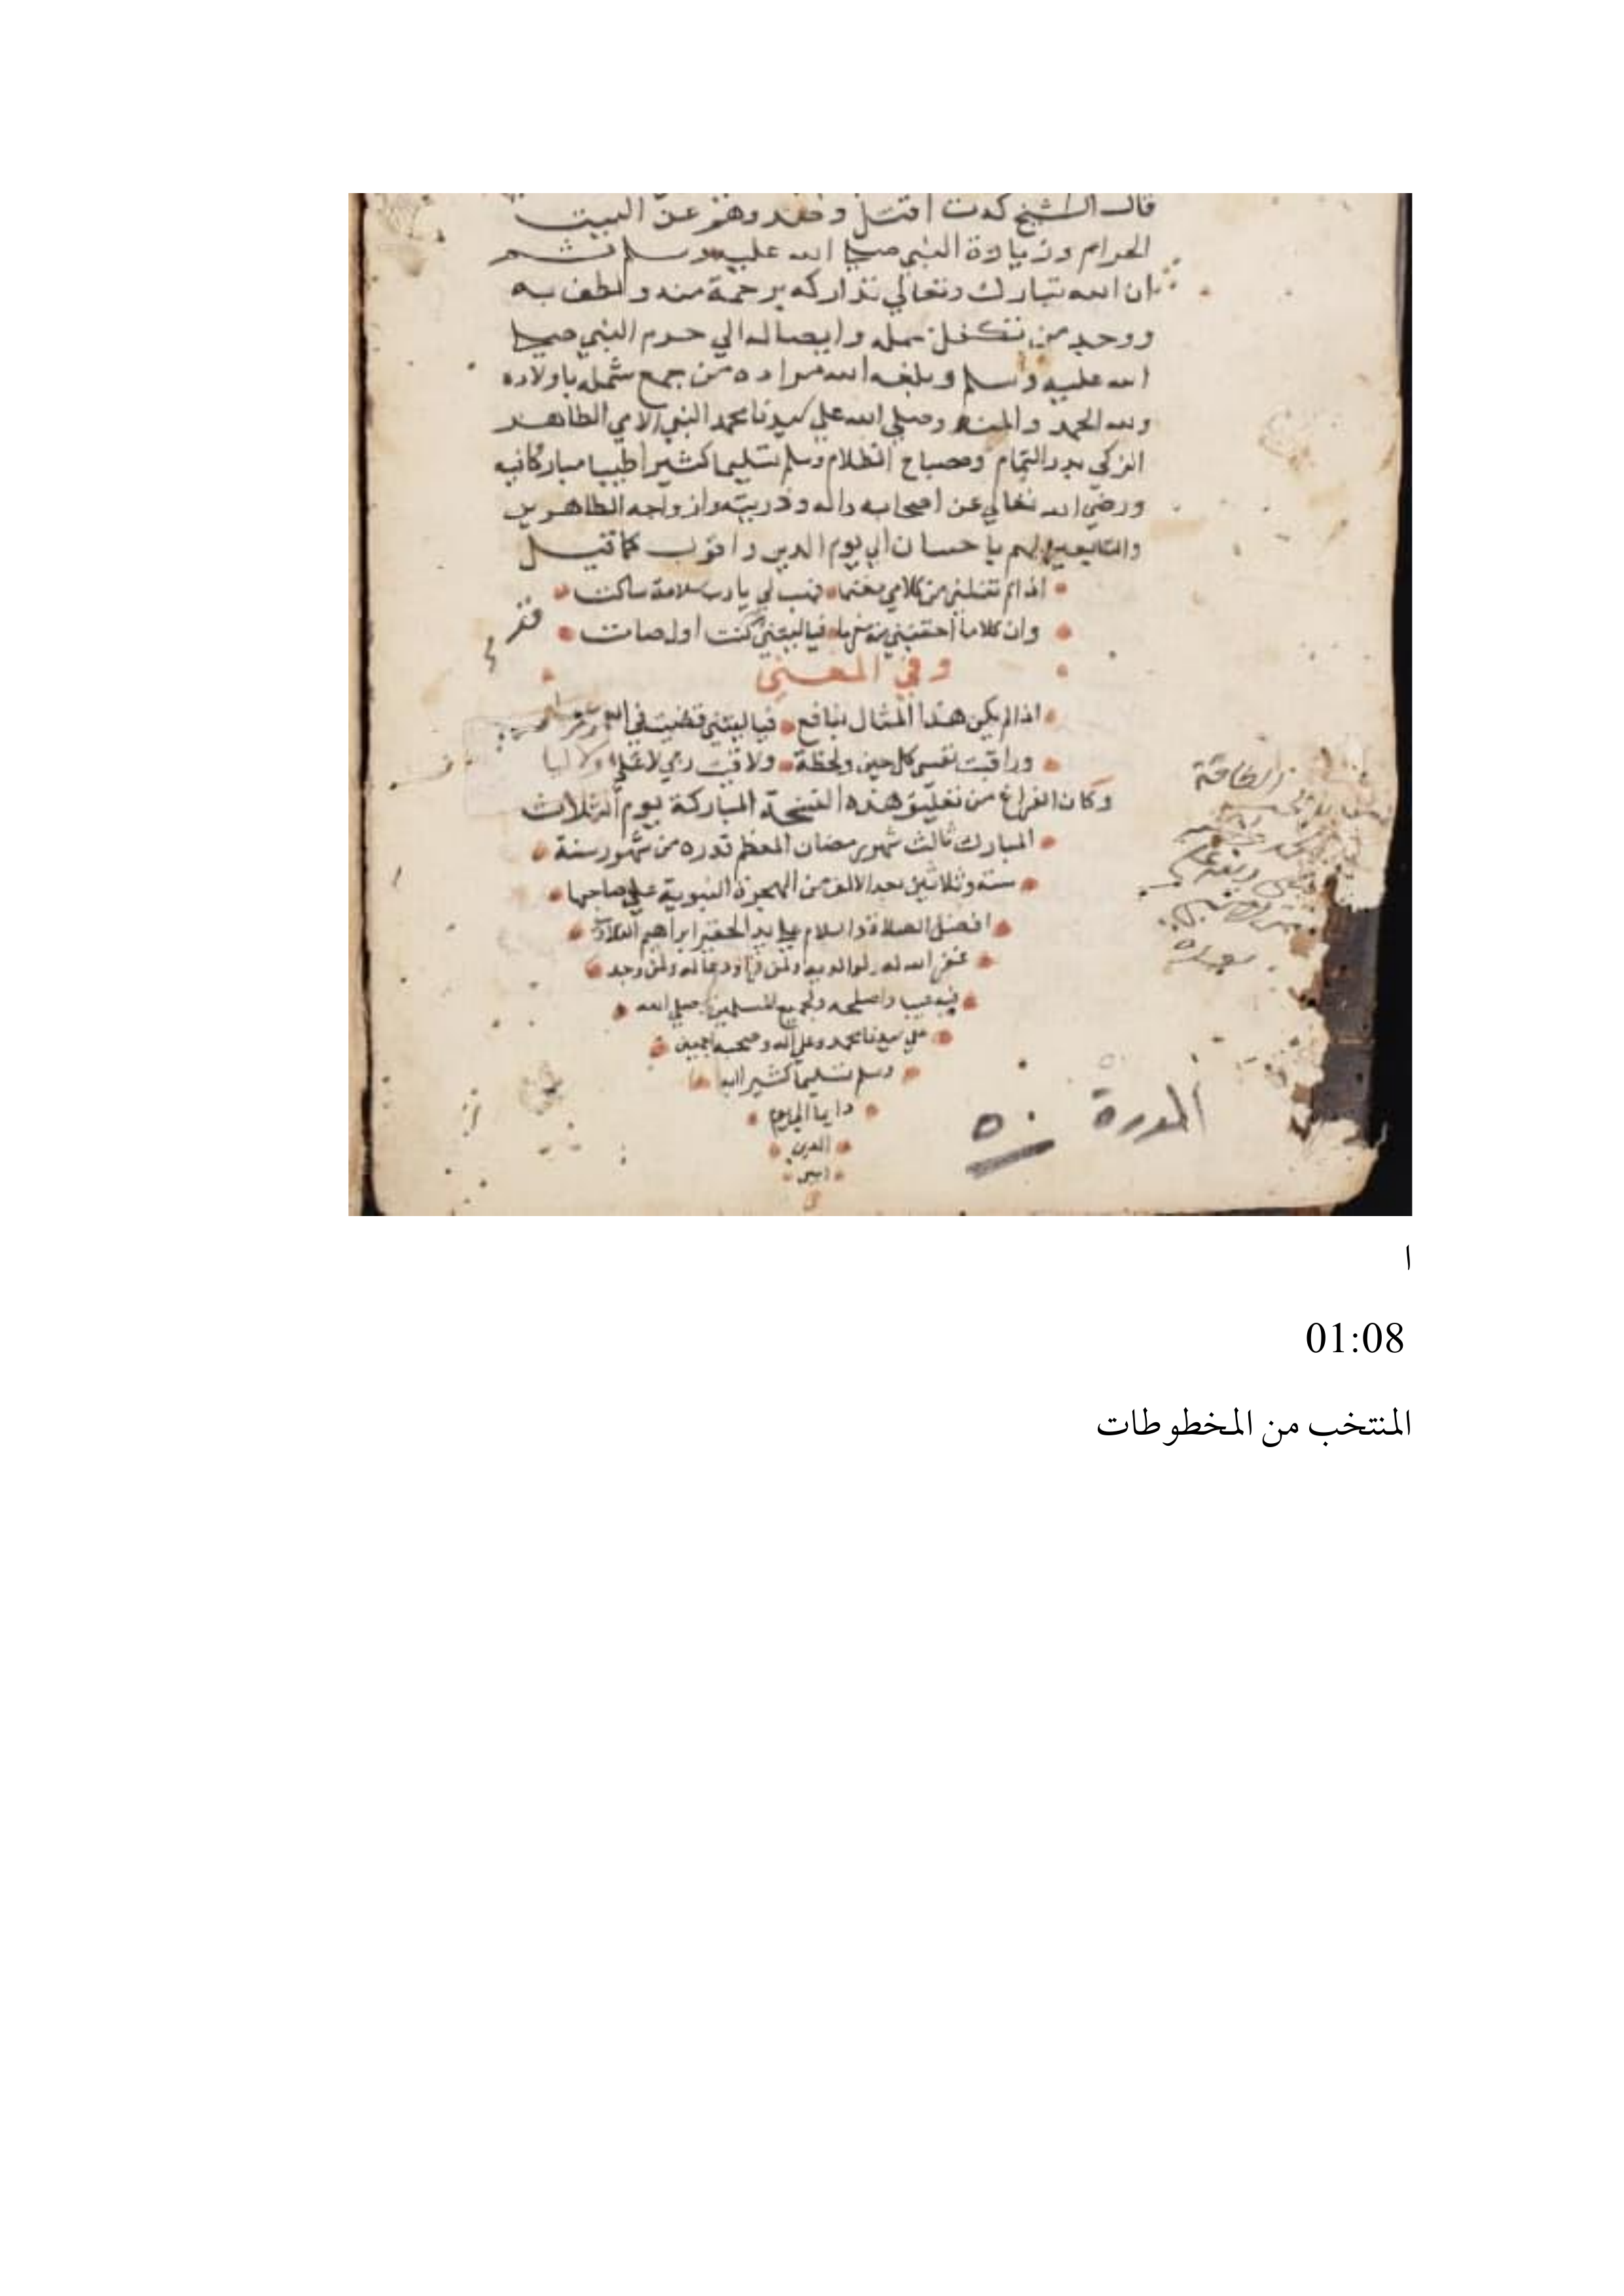 قال الشيخ كدت اقتل وهم عن البيت
الحرام وزيارة النبي صلى الله عليه وسلم ثم
ان الله تبارك وتعالي تداركه برحمة منه ولطف به
ووجد من تكفل بحمله وايصاله الي حرم النبي صلى
الله عليه وسلم وبلغه الله مراده من جمع شمله باولاده
ولله الحمد والمنه وصلي الله علي سيدنا محمد النبي الامي الطاهر
الزكي بدر التمام ومصباح الظلام وسلم تسليما كثيرا طيبا مباركا فيه
ورضي الله تعالي عن اصحابه واله وذريته وازواجه الطاهرين
والتابعين لهم باحسان الي يوم الدين واقول كما قيل
اذا لم تنلني من كلامي مغنما فهب لي يا رب سلامة ساكت
وان كلاما فياليتني كنت اول صامت
وفي المعني
اذا لم يكن هذا المثال بنافع فياليتني قضيت في
وراقبت نفسي كل حين ولحظة ولاقيت ربي لا علي ولا ليا
وكان الفراغ من تعليق هذه النسخة المباركة يوم الثلاث
المبارك ثالث شهر رمضان المعظم قدره من شهور سنة
ستة وثلاثين بعد الالف من الهجرة النبوية علي صاحبها
افضل الصلاة والسلام علي يد الحقير ابراهيم
غفر الله له ولوالديه ولمن قرا ودعا له ولمن وجد
فيه عيبا واصلحه ولجميع المسلمين وصلي الله
علي سيدنا محمد وعلي اله وصحبه اجمعين
وسلم تسليما كثيرا
دايما الي يوم
الدين
امين
٥٠
ا
01:08
المنتخب من المخطوطات